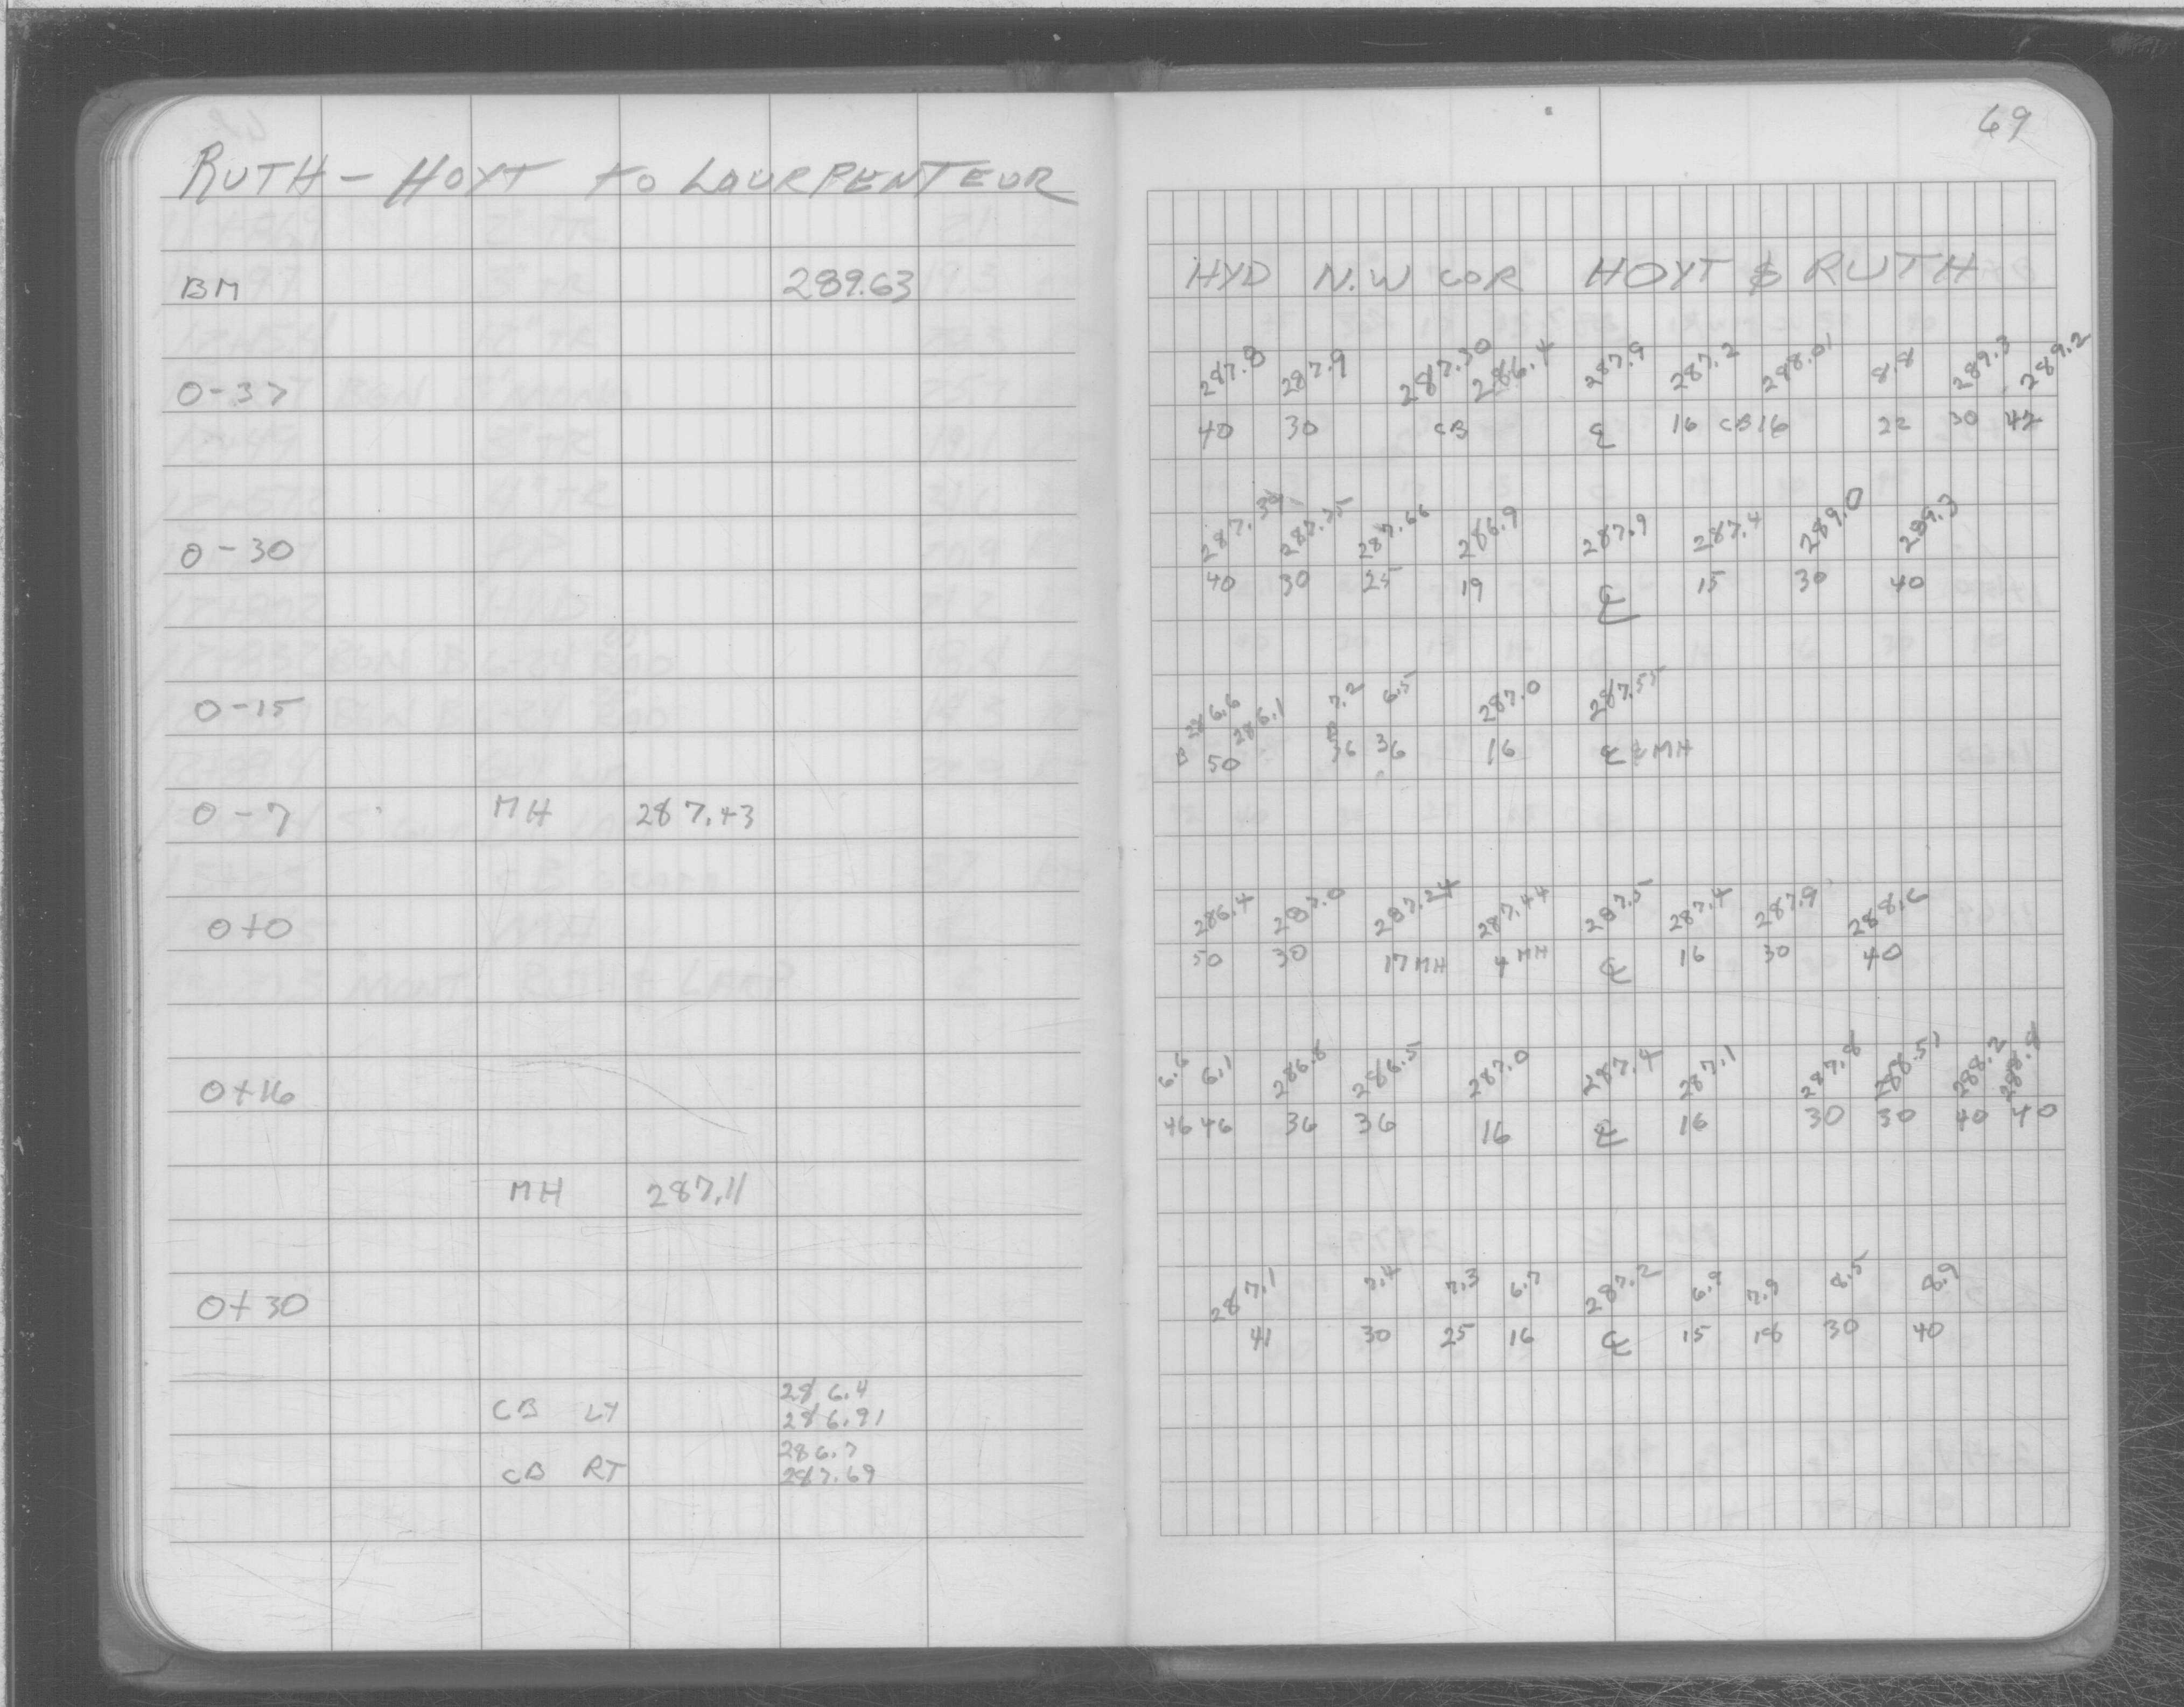 69
RUTH - HOYT to LAURPENTEUR
BM 289.63 HYD N.W COR HOYT & RUTH
287.8 287.9 287.30 286.4 287.9 287.2 288.01 8.8 289.3 289.2
0-37
40 30 CB ℄ 16 CB 16 22 30 42
287.39 287.35 287.66 286.9 287.9 287.4 289.0 289.3
0-30
40 30 25 19 ℄ 15 30 40
286.6 286.1 7.2 6.5 287.0 287.55
0-15
B 50 B 36 36 16 ℄ MH
0-7 MH 287.43
286.4 287.0 287.24 287.44 287.5 287.4 287.9 288.6
0+0
50 30 17 MH 4 MH ℄ 16 30 40
6.6 6.1 286.8 286.5 287.0 287.4 287.1 287.8 288.51 288.2
0+16
46 46 36 36 16 ℄ 16 30 30 40 40
MH 287.11
287.1 7.4 7.3 6.7 287.2 6.9 7.9 8.5 8.9
0+30
41 30 25 16 ℄ 15 18 30 40
286.4
CB LT 286.91
286.7
CB RT 287.69